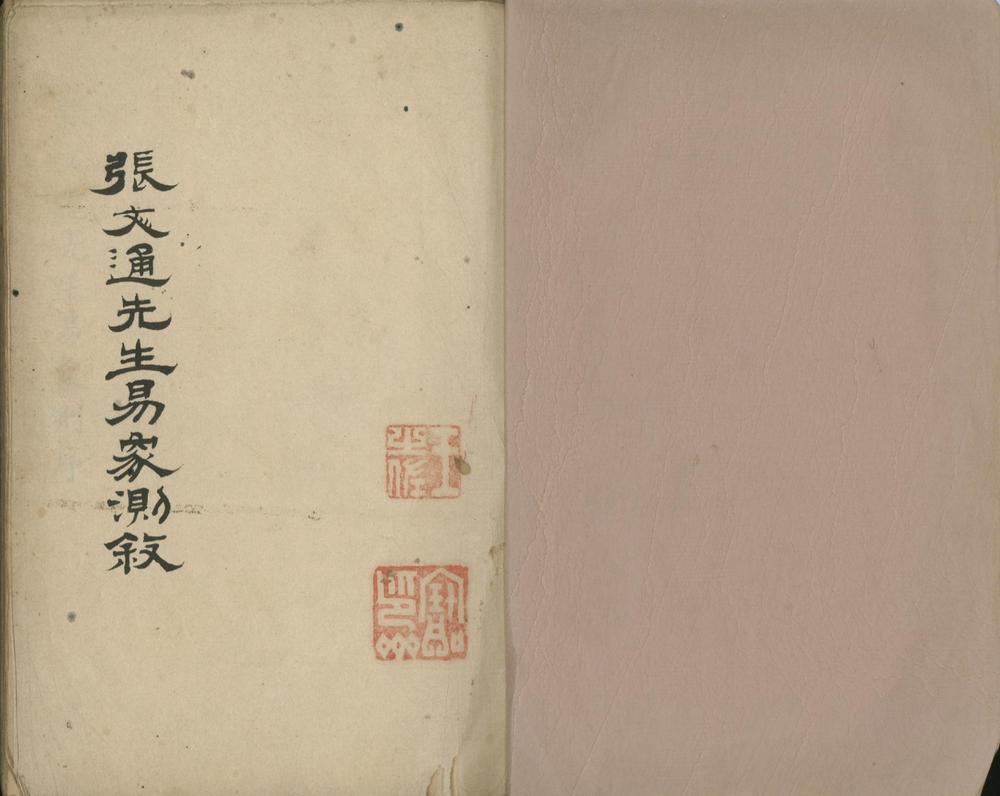 張文通先生易象測敘